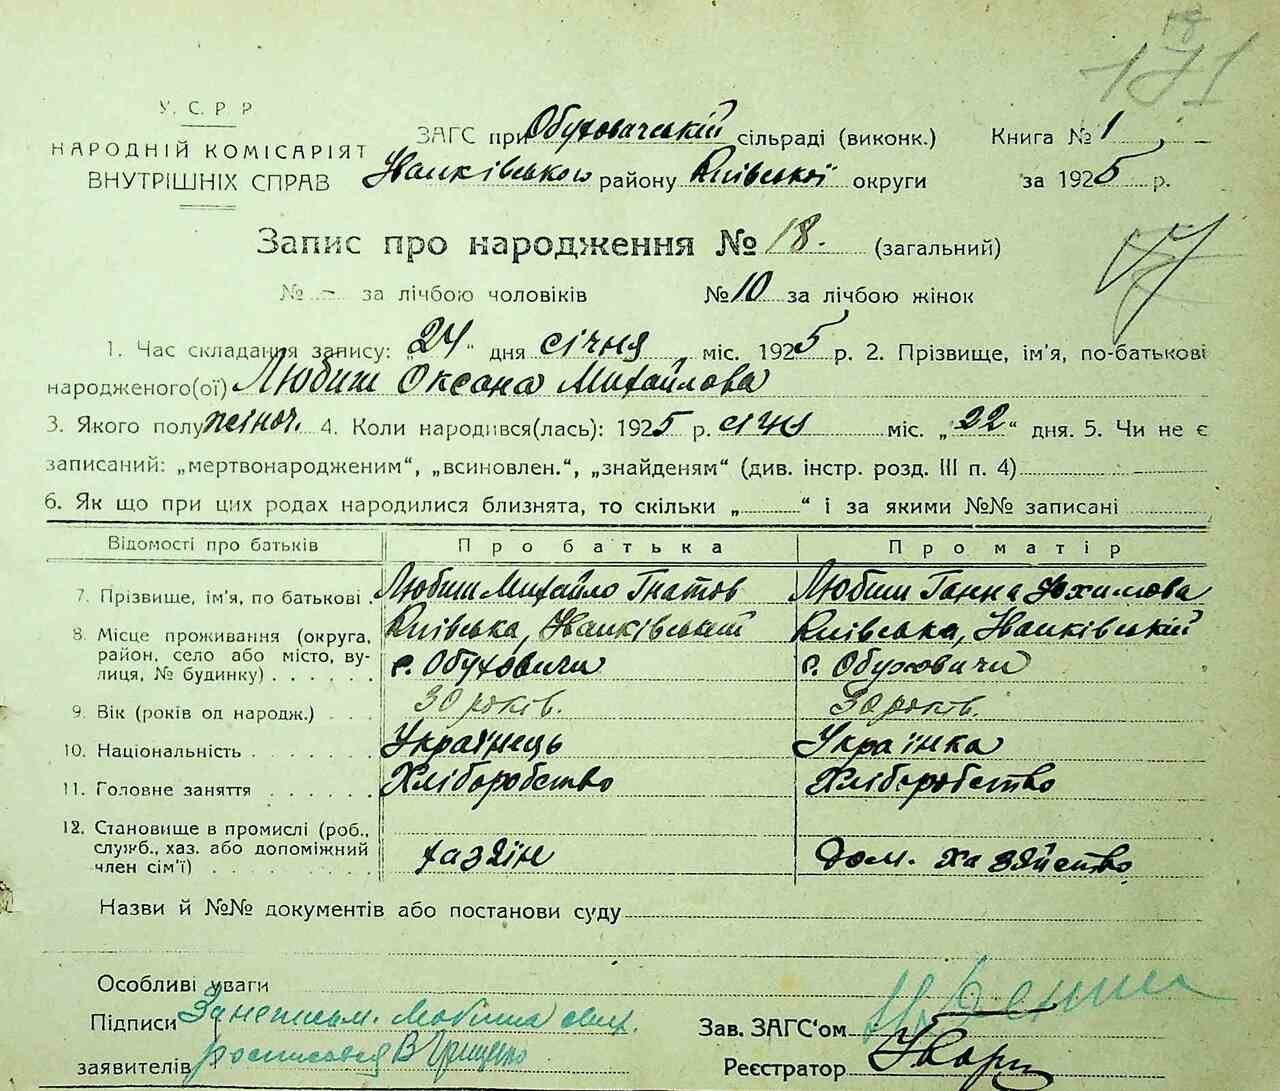 171
У. С. Р Р
НАРОДНІЙ КОМІСАРІЯТ
ВНУТРІШНІХ СПРАВ
ЗАГС при Обуховичській сільраді (виконк.) Книга № 1
Іванківського району Київської округи за 1925 р.
Запис про народження № 18. (загальний)
№ - за лічбою чоловіків № 10 за лічбою жінок
1. Час складання запису: „24" дня січня міс. 1925 р. 2. Прізвище, ім'я, по-батькові
народженого(ої) Любиш Оксана Михайлова
3. Якого полу жіноч. 4. Коли народився(лась): 1925 р. січня міс. „22" дня. 5. Чи не є
записаний: „мертвонародженим", „всиновлен.", „знайденям" (див. інстр. розд. III п. 4)
6. Як що при цих родах народилися близнята, то скільки „ " і за якими №№ записані
Відомості про батьків Про батька Про матір
7. Прізвище, ім'я, по батькові . Любиш Михайло Гнатов Любиш Ганна Юхимова
8. Місце проживання (округа, район, село або місто, вулиця, № будинку) . . . . . . Київська, Іванківський Київська, Іванківський
с. Обуховичи с. Обуховичи
9. Вік (років од народж.) . . . 30 років. 30 років.
10. Національність . . . . . . Українець Українка
11. Головне заняття . . . . . . Хліборобство Хліборобство
12. Становище в промислі (роб.,
служб., хаз. або допоміжний
член сім'ї) . . . . . . . . . хазяїн Дом. хазяйство
Назви й №№ документів або постанови суду
Особливі уваги
Підписи За неписьм. Любиша
заявителів росписався В Грищенко
Зав. ЗАГС'ом
Реєстратор